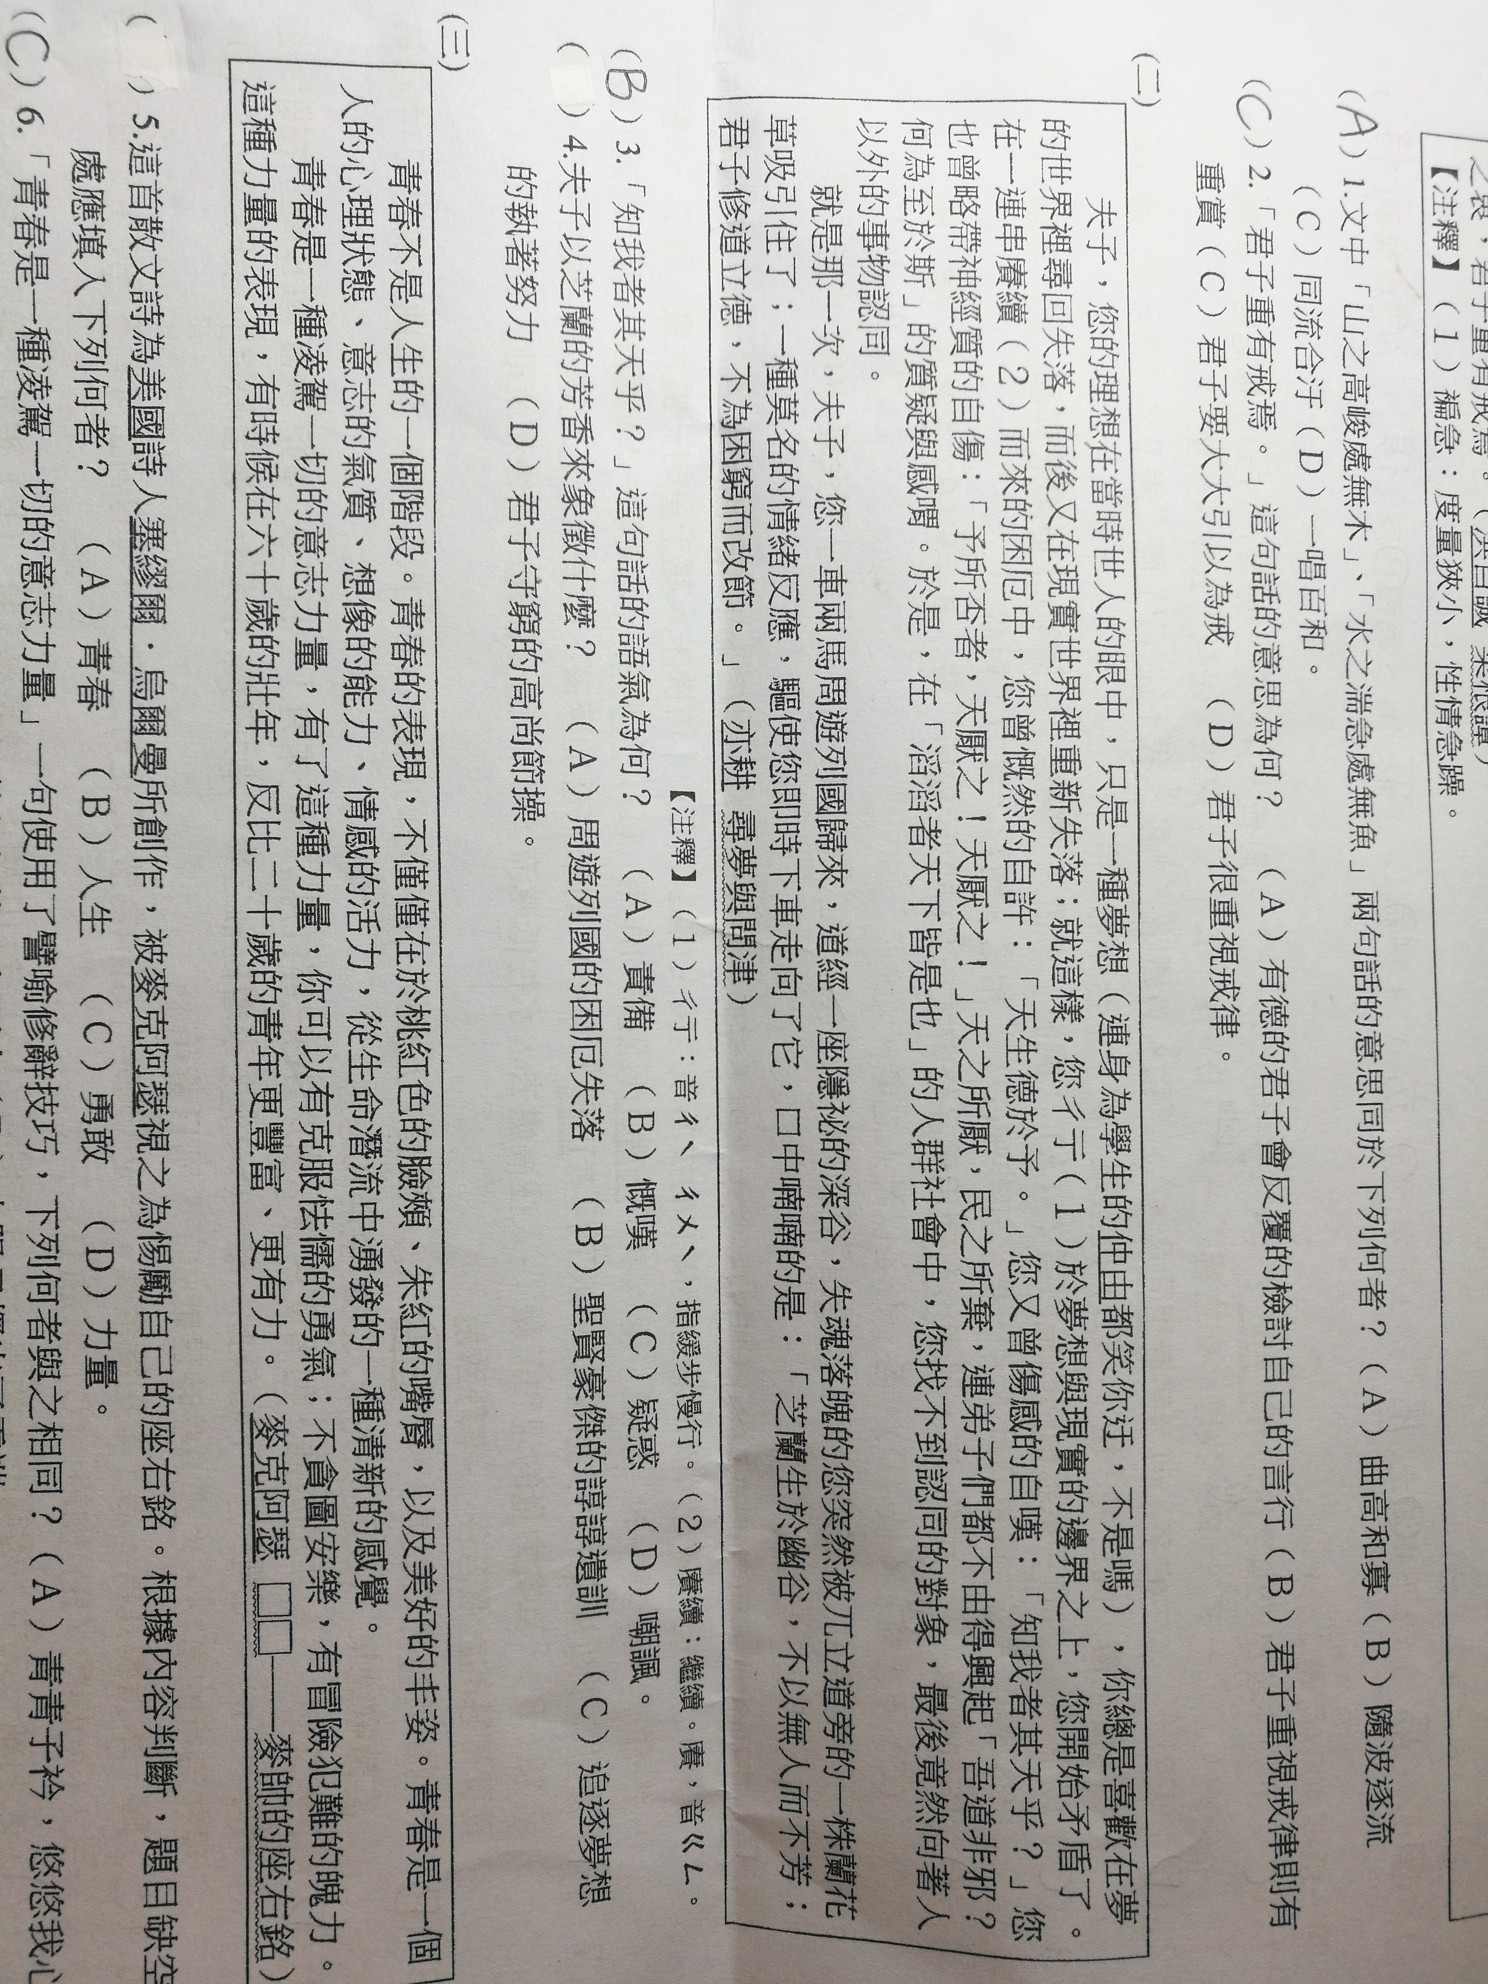 之褱，君子重有戒焉。（洪自誠 菜根譚）
【注釋】（１）褊急：度量狹小，性情急躁。
（A）1.文中「山之高峻處無木」、「水之湍急處無魚」兩句話的意思同於下列何者？（A）曲高和寡（B）隨波逐流
（C）同流合汙（D）一唱百和。
（C）2.「君子重有戒焉。」這句話的意思為何？ （A）有德的君子會反覆的檢討自己的言行（B）君子重視戒律則有
重賞（C）君子要大大引以為戒 （D）君子很重視戒律。
(二)
夫子，您的理想在當時世人的眼中，只是一種夢想（連身為學生的仲由都笑你迂，不是嗎），你總是喜歡在夢
的世界裡尋回失落，而後又在現實世界裡重新失落；就這樣，您彳亍（１）於夢想與現實的邊界之上，您開始矛盾了。
在一連串賡續（２）而來的困厄中，您曾慨然的自許：「天生德於予。」您又曾傷感的自嘆：「知我者其天乎？」您
也曾略帶神經質的自傷：「予所否者，天厭之！天厭之！」天之所厭，民之所棄，連弟子們都不由得興起「吾道非邪？
何為至於斯」的質疑與感喟。於是，在「滔滔者天下皆是也」的人群社會中，您找不到認同的對象，最後竟然向著人
以外的事物認同。
就是那一次，夫子，您一車兩馬周遊列國歸來，道經一座隱祕的深谷，失魂落魄的您突然被兀立道旁的一株蘭花
草吸引住了；一種莫名的情緒反應，驅使您即時下車走向了它，口中喃喃的是：「芝蘭生於幽谷，不以無人而不芳；
君子修道立德，不為困窮而改節。」（亦耕 尋夢與問津）
【注釋】（１）彳亍：音ㄔˋ ㄔㄨˋ，指緩步慢行。（２）賡續：繼續。賡，音ㄍㄥ。
（B）3.「知我者其天乎？」這句話的語氣為何？ （A）責備 （B）慨嘆 （C）疑惑 （D）嘲諷。
（ ）4.夫子以芝蘭的芳香來象徵什麼？ （A）周遊列國的困厄失落 （B）聖賢豪傑的諄諄遺訓 （C）追逐夢想
的執著努力 （D）君子守窮的高尚節操。
(三)
青春不是人生的一個階段。青春的表現，不僅僅在於桃紅色的臉頰、朱紅的嘴脣，以及美好的丰姿。青春是一個
人的心理狀態、意志的氣質、想像的能力、情感的活力，從生命潛流中湧發的一種清新的感覺。
青春是一種凌駕一切的意志力量，有了這種力量，你可以有克服怯懦的勇氣；不貪圖安樂，有冒險犯難的魄力。
這種力量的表現，有時候在六十歲的壯年，反比二十歲的青年更豐富、更有力。（麥克阿瑟 □□——麥帥的座右銘）
（ ）5.這首散文詩為美國詩人塞繆爾．烏爾曼所創作，被麥克阿瑟視之為惕勵自己的座右銘。根據內容判斷，題目缺空
處應填入下列何者？ （A）青春 （B）人生 （C）勇敢 （D）力量。
（C）6.「青春是一種凌駕一切的意志力量」一句使用了譬喻修辭技巧，下列何者與之相同？（A）青青子衿，悠悠我心